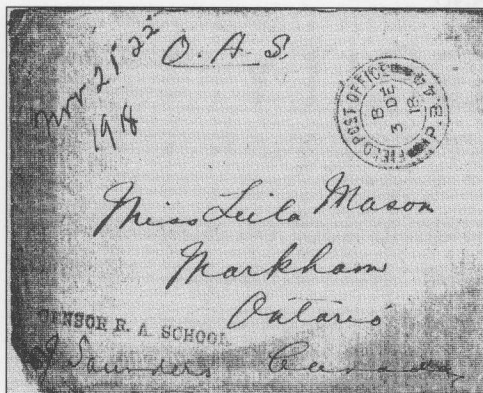 Nov 21 22
1918
O.A.S.
FIELD POST OFFICE P.B.4
B
3 DE
18
Miss Leila Mason
Markham
Ontario
CENSOR R. A. SCHOOL
J Saunders Canada